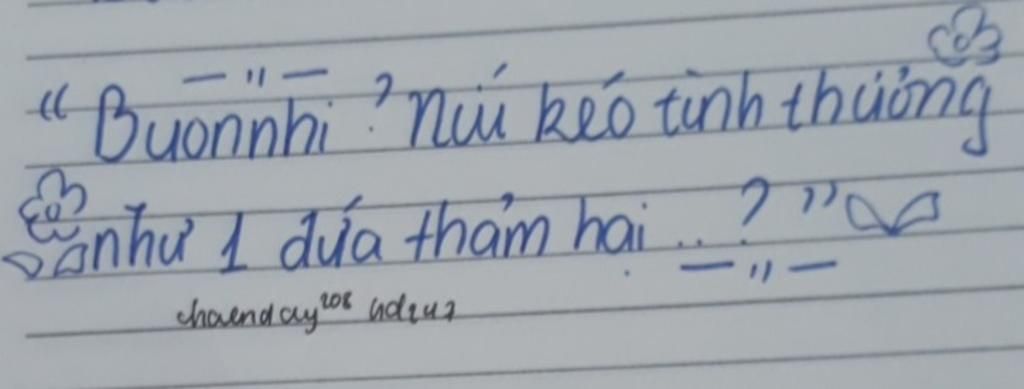 “Buonnhi ? núi kéo tình thương
như 1 đứa thảm hại ..? ”
chaenday²⁰⁸